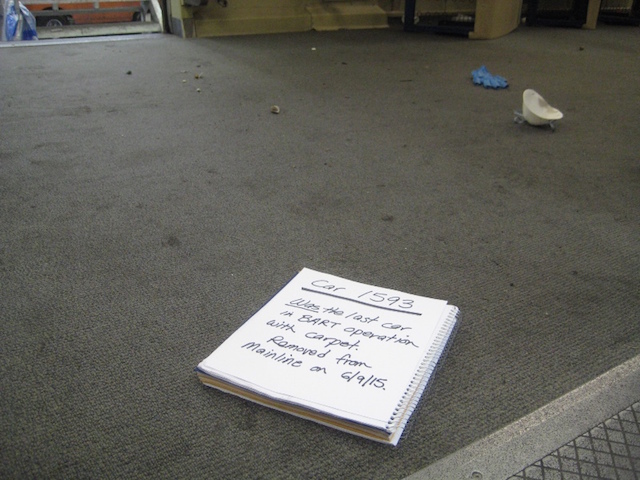 Car 1593
Was the last car
in BART operation
with carpet.
Removed from
Mainline on 6/9/15.